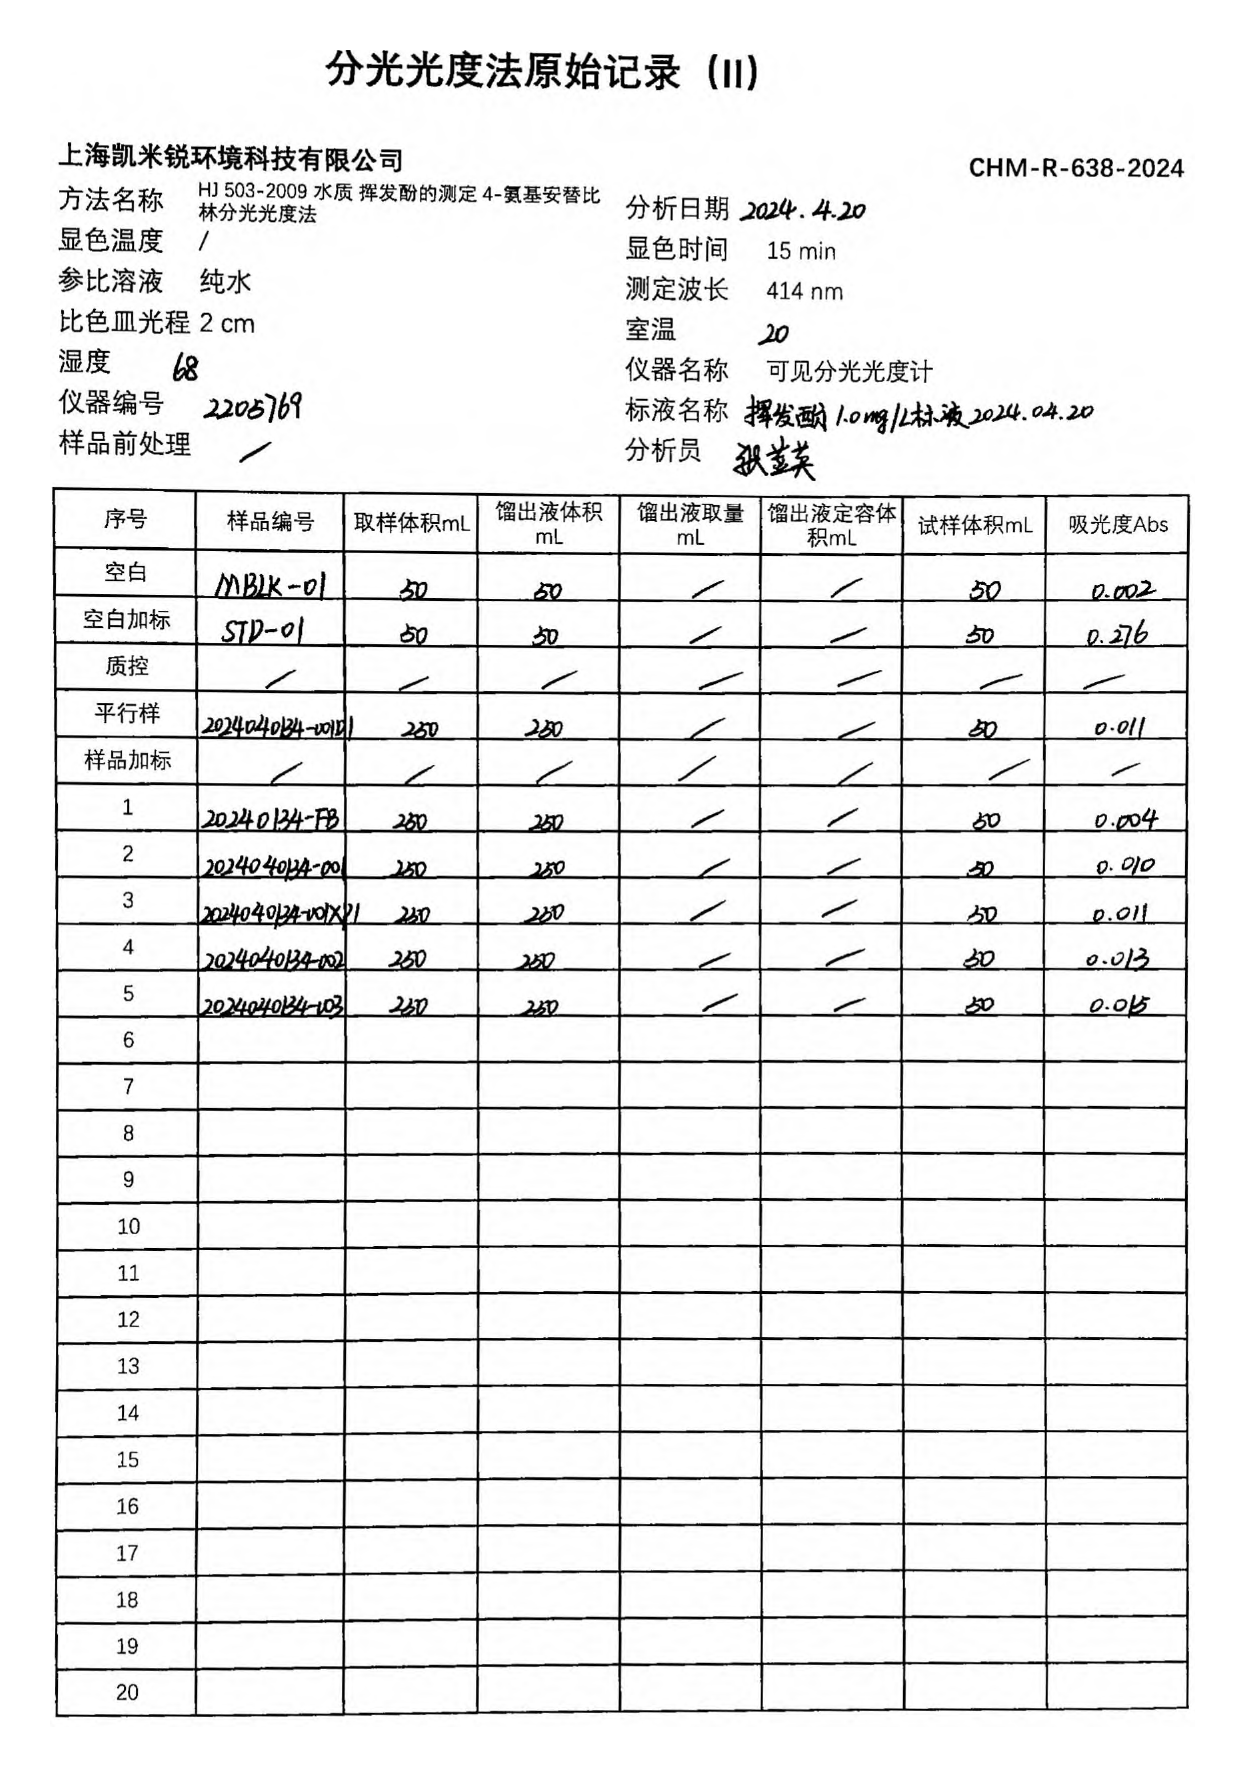 分光光度法原始记录（II）
上海凯米锐环境科技有限公司
CHM-R-638-2024
方法名称 HJ 503-2009 水质 挥发酚的测定 4-氨基安替比林分光光度法
分析日期 2024.4.20
显色温度 /
显色时间 15 min
参比溶液 纯水
测定波长 414 nm
比色皿光程 2 cm
室温 20
湿度 68
仪器名称 可见分光光度计
仪器编号 2205769
标液名称 挥发酚1.0mg/L标液2024.04.20
样品前处理 /
分析员
序号 样品编号 取样体积mL 馏出液体积mL 馏出液取量mL 馏出液定容体积mL 试样体积mL 吸光度Abs
空白 MBLK-01 50 50 / / 50 0.002
空白加标 STD-01 50 50 / / 50 0.276
质控 / / / / / / /
平行样 2024040134-001D1 250 250 / / 50 0.011
样品加标 / / / / / / /
1 20240134-FB 250 250 / / 50 0.004
2 2024040134-001 250 250 / / 50 0.010
3 2024040134-001XP1 250 250 / / 50 0.011
4 2024040134-002 250 250 / / 50 0.013
5 2024040134-003 250 250 / / 50 0.015
6
7
8
9
10
11
12
13
14
15
16
17
18
19
20